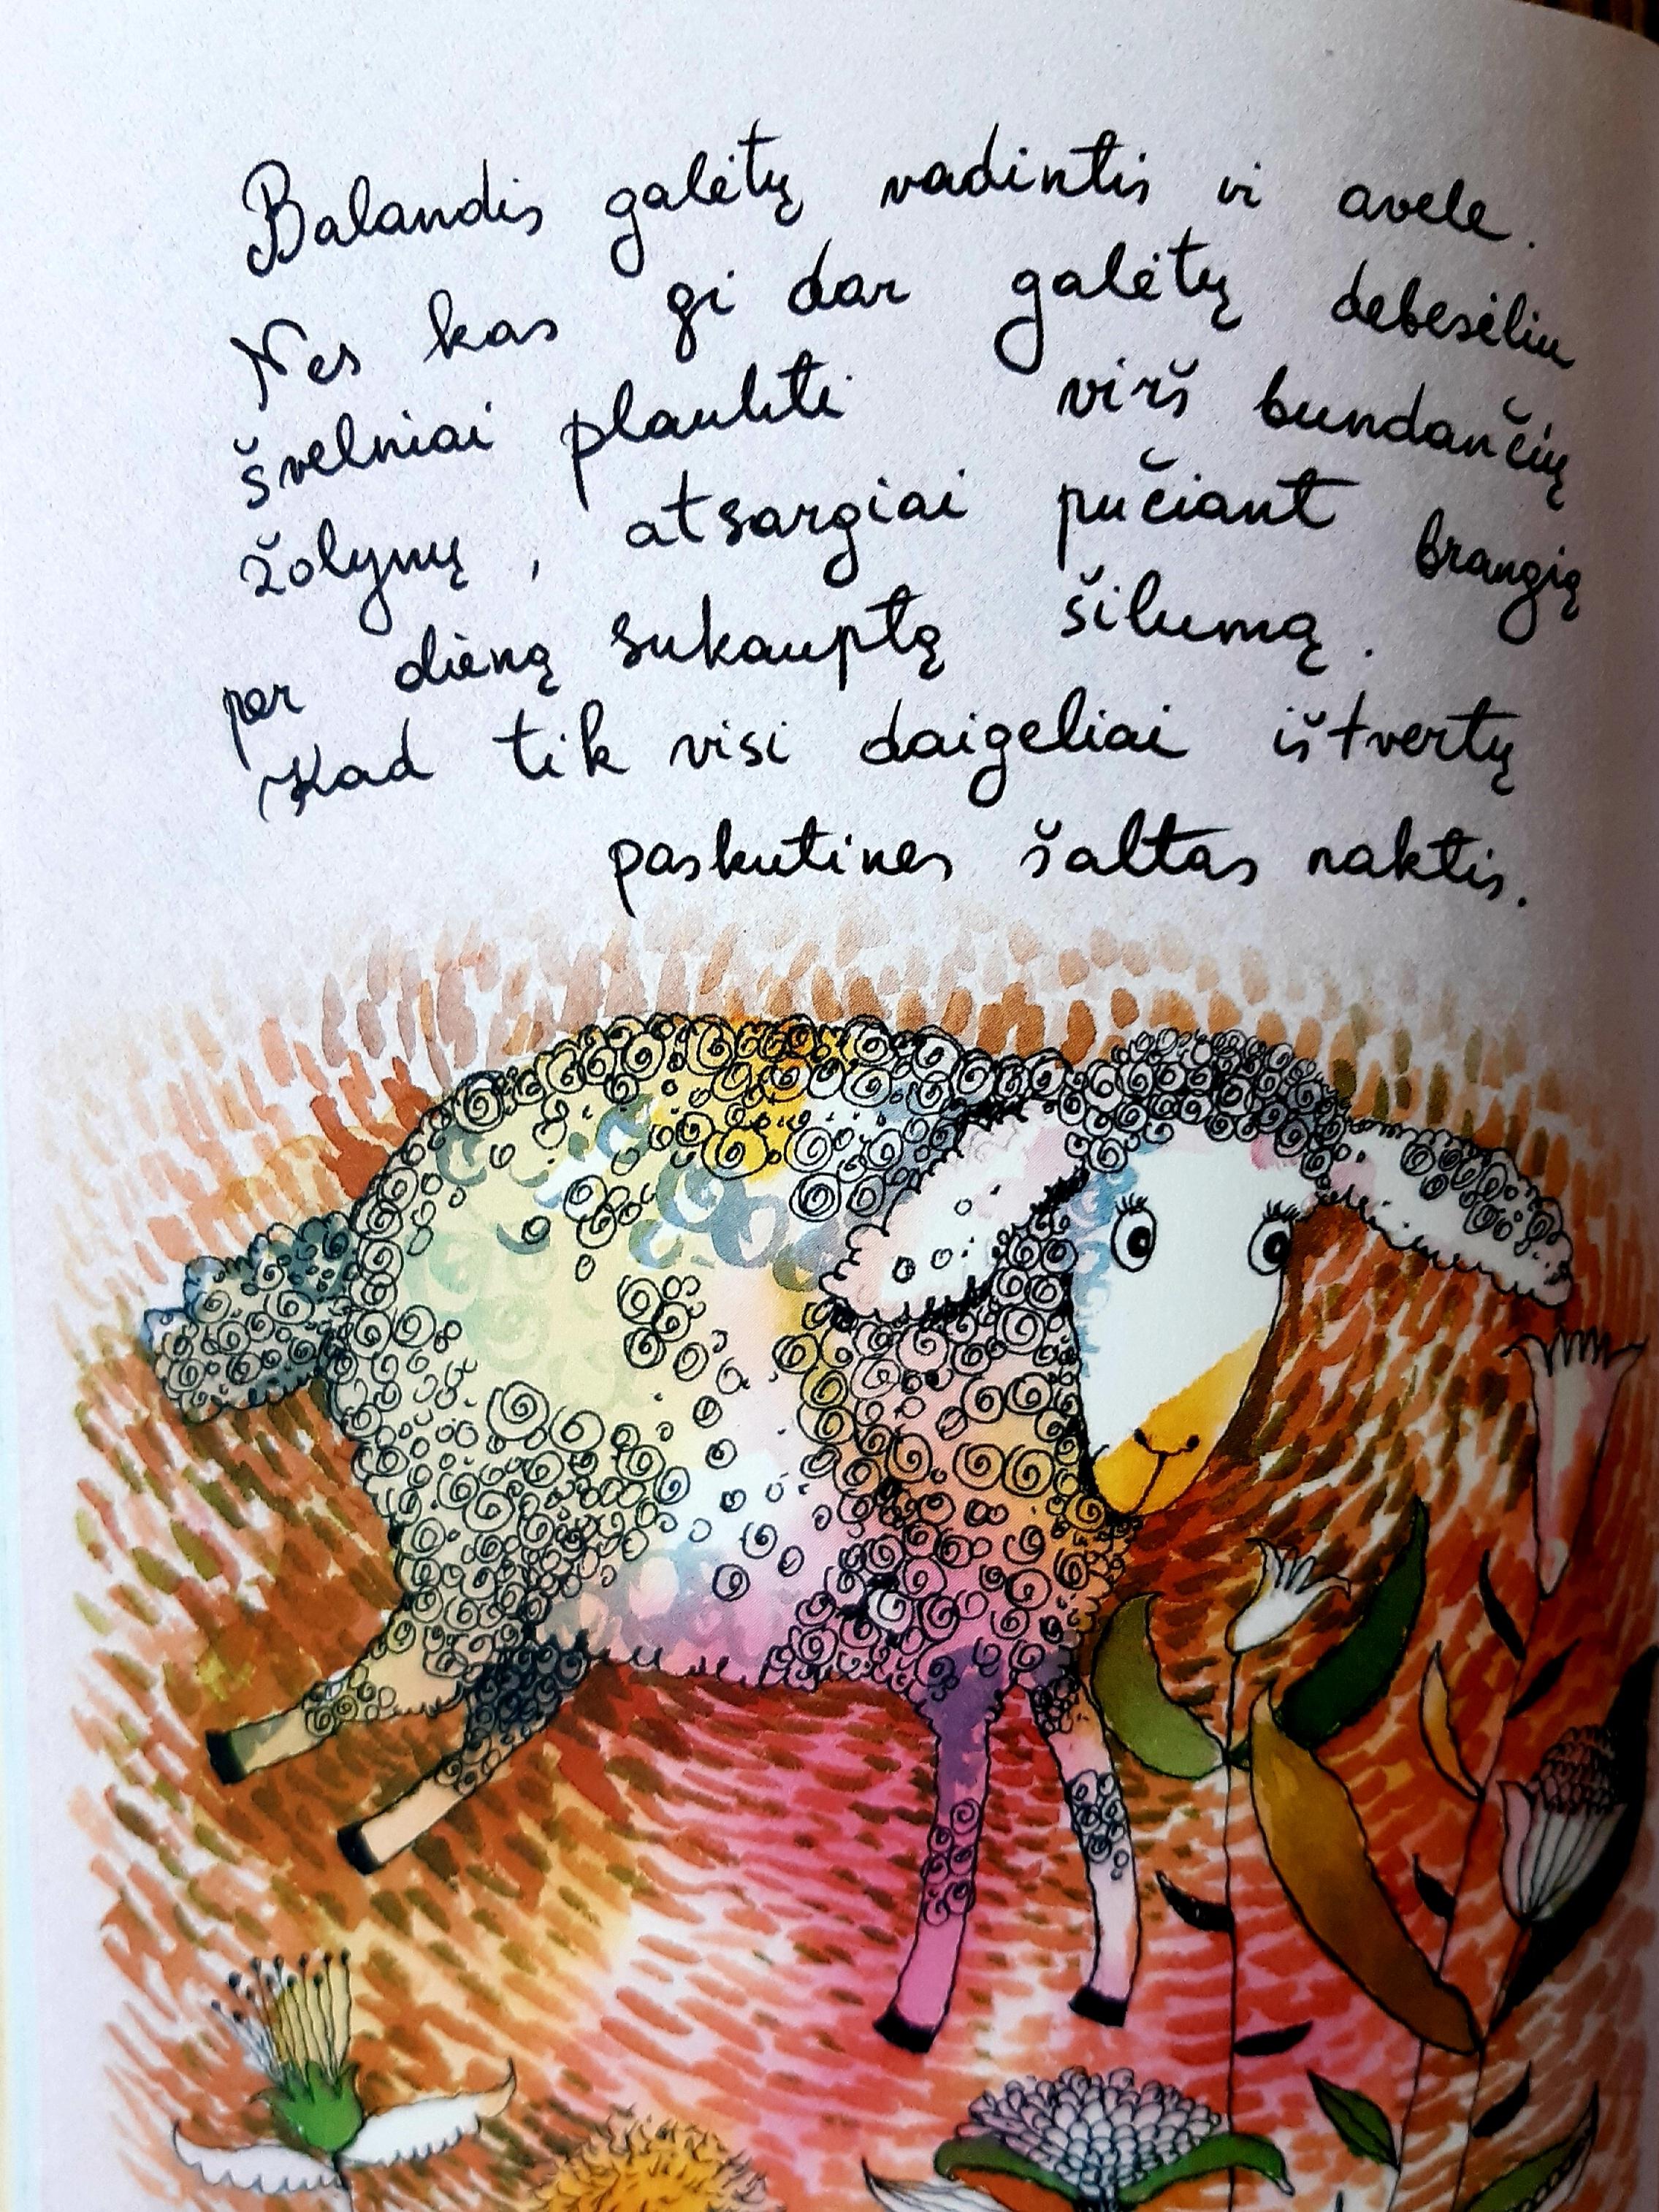 Balandis galėtų vadintis vi avele.
Nes kas gi dar galėtų debesėliu
švelniai plaukti virš bundančių
žolynų, atsargiai pučiant brangią
per dieną sukauptą šilumą.
Kad tik visi daigeliai ištvertų
paskutines šaltas naktis.